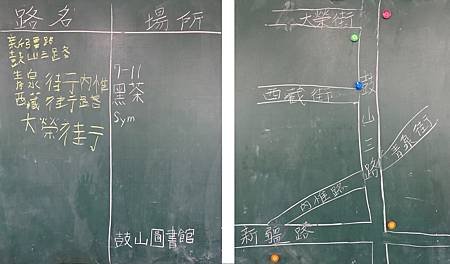 路名 場所
鼓山三路
青泉街 內惟
西藏街
大榮街
7-11
黑茶
Sym
鼓山圖書館
大榮街
西藏街
鼓山三路
青泉街
內惟路
新疆路